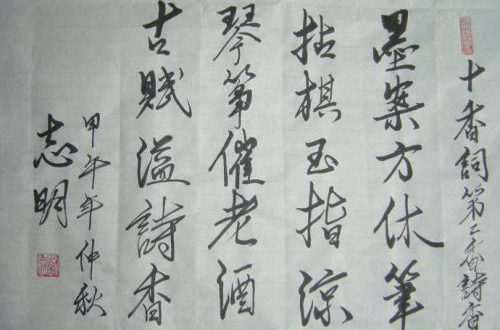 十香詞第二香詩香
墨案方休筆
拈棋玉指涼
琴箏催老酒
古賦溢詩香
甲午年仲秋
志明